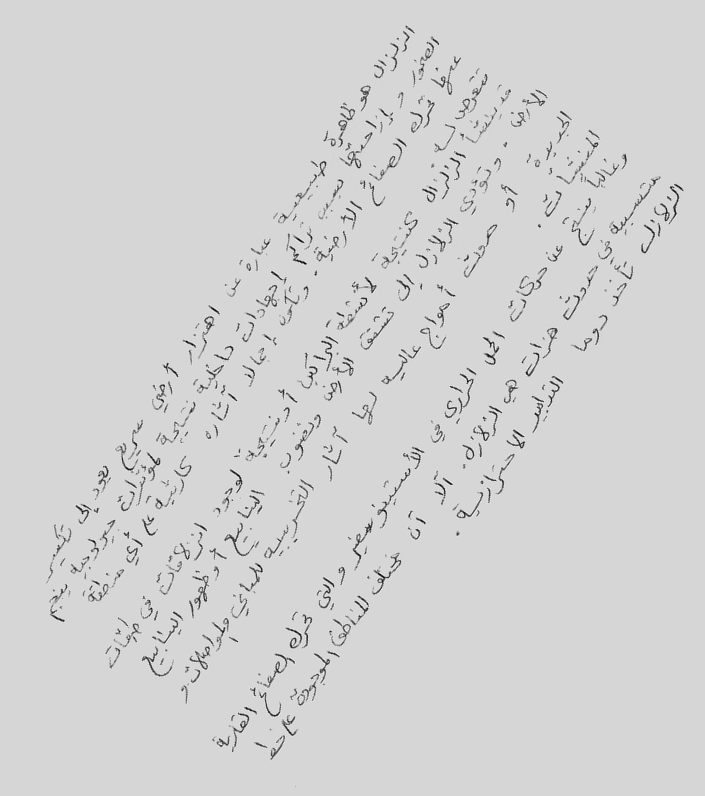 الزلزال هو ظاهرة طبيعية عبارة عن اهتزاز أرضي سريع يعود إلى تكسير
الصخور و إزاحتها بسبب تراكم إجهادات داخلية نتيجة لمؤثرات جيولوجية ينجم
عنها تحرك الصفائح الأرضية. وتكون إجمالا آثاره كارثية على أي منطقة
تتعرض له
قد ينشأ الزلزال كنتيجة لأنشطة البراكين أو نتيجة لوجود انزلاقات في طبقات
الأرض. وتؤدي الزلازل إلى تشقق الأرض ونضوب الينابيع أو ظهور الينابيع
الجديدة أو حدوث أمواج عالية لها آثار التخريبية للمباني والمواصلات و
المنشآت.
وغالباً ينتج عن حركات الحمل الحراري في الأستينوسفير والتي تحرك الصفائح القارية
متسببة في حدوث هزات هي الزلازل. آلا آن مختلف المناطق الموجودة على خط
الزلازل تأخذ دوما التدابير الاحترازية.